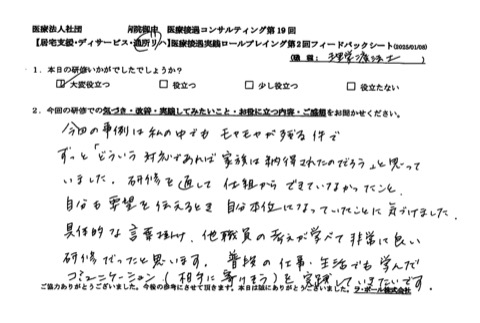 医療法人社団 病院御中 医療接遇コンサルティング第19回
【居宅支援・デイサービス・通所リハ】医療接遇実践ロールプレイング第2回フィードバックシート(2025/01/08)
(職種: 理学療法士)
1.本日の研修いかがでしたでしょうか?
☑大変役立つ □役立つ □少し役立つ □役立たない
2.今回の研修での気づき・改善・実践してみたいこと・お役に立つ内容・ご感想をお聞かせください。
今回の事例は私の中でも モヤモヤが残る件で
ずっと「どういう対応であれば 家族は納得されたのだろう」と思って
いました。研修を通して 仕組からできていなかったこと、
自分も要望を伝えるとき 自分本位になっていたことに気づけました。
具体的な言葉掛け、他職員の考えが学べて非常に良い
研修だったと思います。普段の仕事・生活でも学んだ
コミュニケーション(相手に寄りそう)を実践していきたいです。
ご協力ありがとうございました。今後の参考にさせて頂きます。本日は誠にありがとうございました。ラ・ポール株式会社